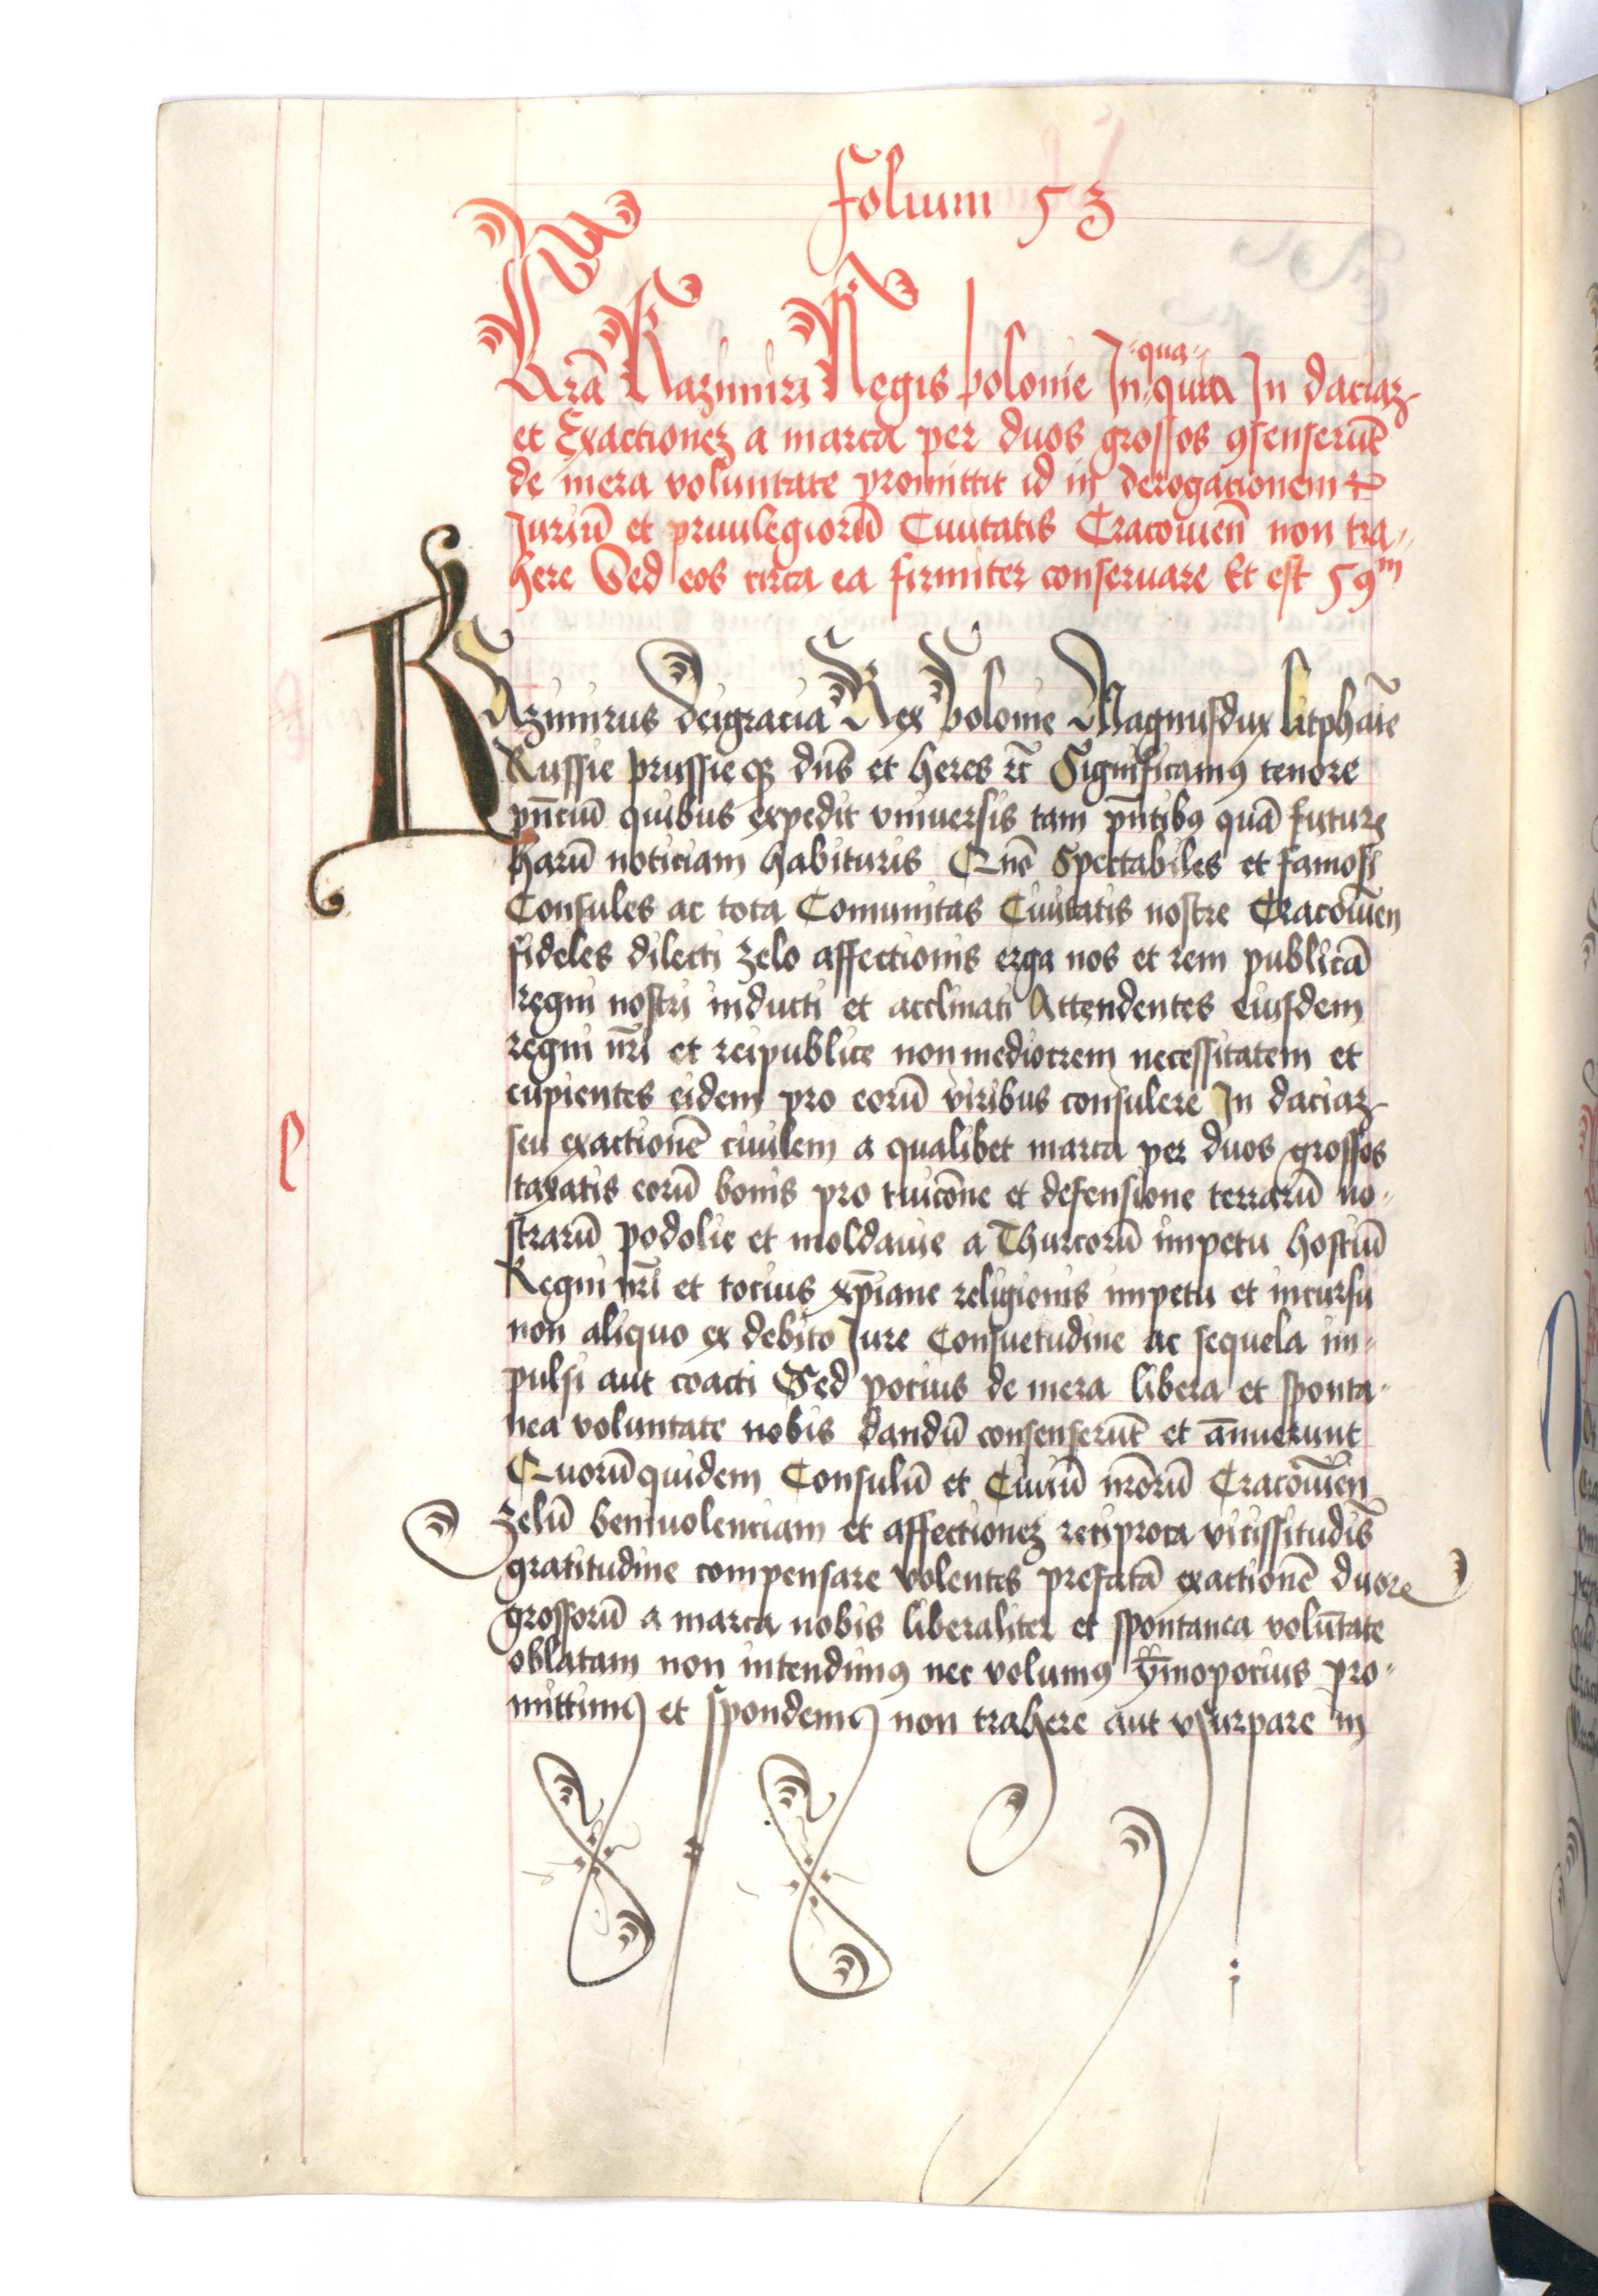 folium 53
Lrā Kazimiri Regis polonie In qua In daciaz
et Exactionez a marca per duos grossos ꝯsenserūt
de mera voluntate promittit id in derogationem
Juriū et priuilegiorū Ciuitatis Cracouien̄ non tra-
here Sed eos circa ea firmiter conseruare Et est 59m
KAzimirus deigracia Rex polonie Magnusdux litphaīe
Russie prussieqꝫ dn̄s et heres rc̄ Significamꝰ tenore
pn̄ciū quibus expedit vniuersis tam pn̄tibꝰ quā futurꝭ
harū noticiam habituris Qn̄e Spectabiles et famosi
Consules ac tota Comunitas Ciuitatis nostre Cracouien̄
fideles dilecti zelo affectionis erga nos et rem publicā
regni nostri inducti et acclinati Attendentes eiusdem
regni nr̄i et reipublice nonmediocrem necessitatem et
cupientes eidem pro eorū viribus consulere In daciaz
seu exactionē ciuilem a qualibet marca per duos grossos
taxatis eorū bonis pro tuicōne et defensione terrarū no-
strarū podolie et moldauie a Thurcorū impetu hostiū
Regni nr̄i et tocius xp̄iane religionis impetu et incursu
non aliquo ex debito Jure Consuetudine ac sequela im-
pulsi aut coacti Sed pocius de mera libera et sponta-
nea voluntate nobis dandū consenserūt et ānuerunt
Quorūquidem Consulū et Ciuiū nr̄orū Cracouien̄
zelū beniuolenciam et affectionez reciproca vicissitudīs
gratitudine compensare volentes prefatā exactionē duorꝭ
grossorū a marca nobis liberaliter et spontanea volūtate
oblatam non intendimꝰ nec volumꝰ ȳmopocius pro-
mittimꝰ et spondemꝰ non trahere aut vsurpare in